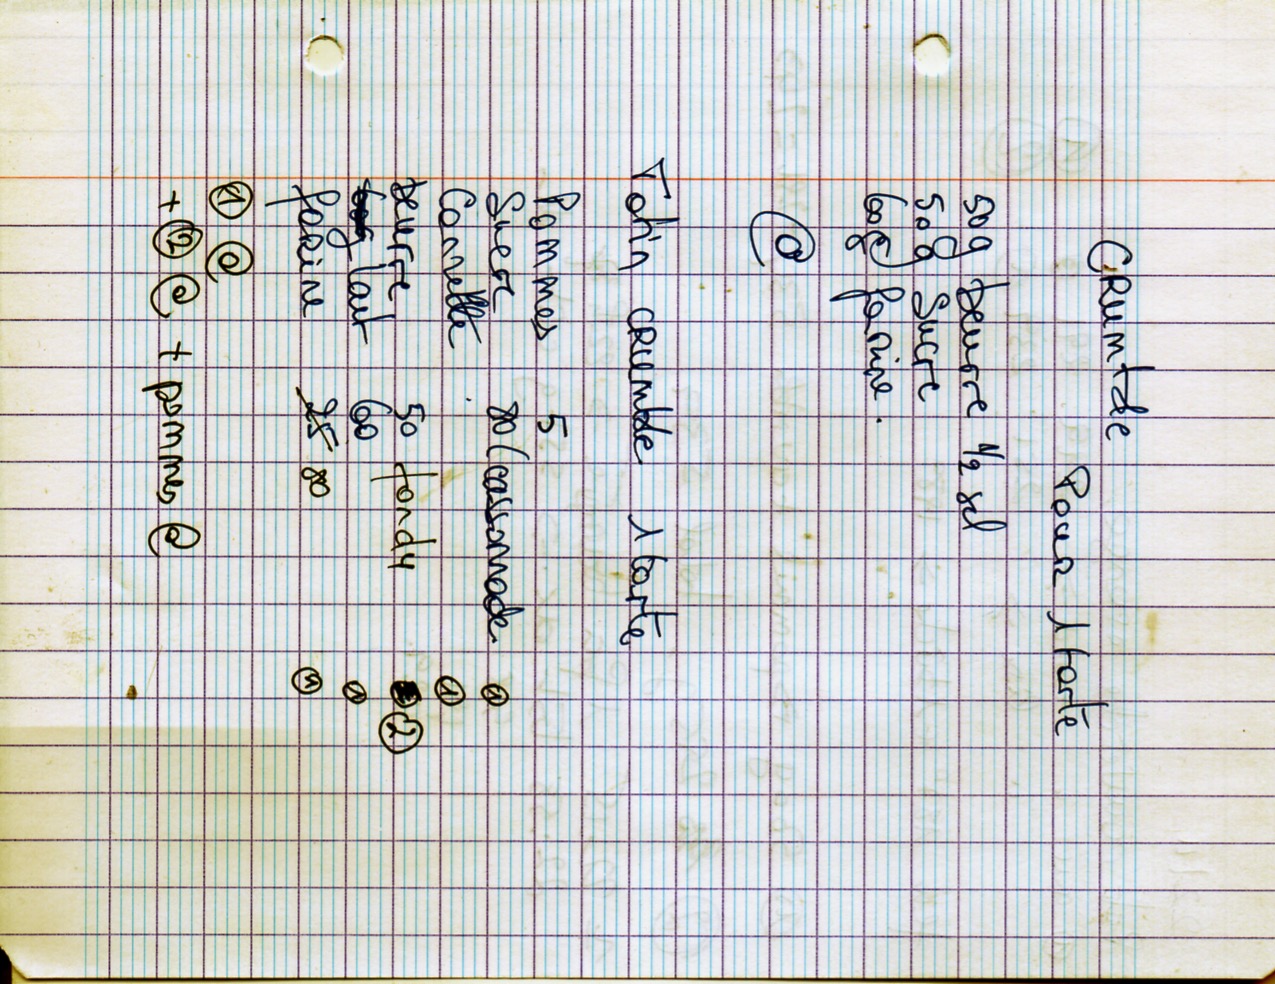 Crumble
Pour 1 tarte
50g beurre 1/2 sel
50g sucre
60g farine.
@
Tatin crumble 1 tarte
Pommes 5
Sucre 80 (cassonade. ①
Cannelle ①
beurre 50 fondu ②
lait 60 ①
farine 25 80 ①
① @
+ ② @ + pommes @